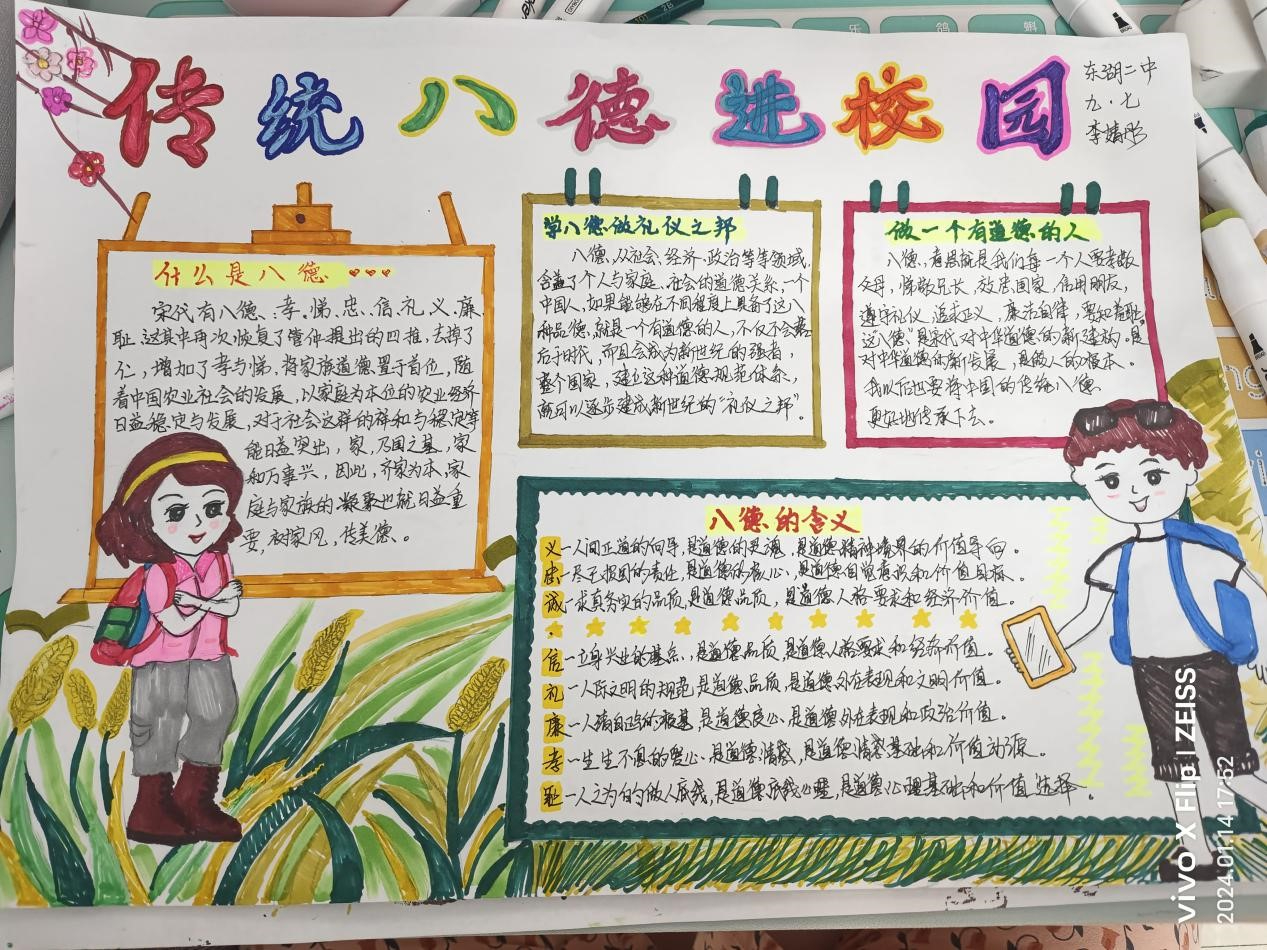 传统八德进校园
东湖二中
九·七
李婧彤
什么是八德
宋代有八德：孝、悌、忠、信、礼、义、廉、
耻，这其中再次恢复了管仲提出的四维，去掉了
仁，增加了孝与悌，将家族道德置于首位，随
着中国农业社会的发展，以家庭为本位的农业经济
日益稳定与发展，对于社会这样的祥和与稳定等
能日益突出，家，乃国之基，家
和万事兴，因此，齐家为本，家
庭与家族的凝聚也就日益重
要，树家风，传美德。
学八德做礼仪之邦
八德，从社会、经济、政治等等领域，
涵盖了个人与家庭、社会的道德关系，一个
中国人，如果能够在不同程度上具备了这八
种品德，就是一个有道德的人，不仅不会落
后于时代，而且会成为新世纪的强者，
整个国家，建立这种道德规范体系，
就可以逐步建成新世纪的“礼仪之邦”。
做一个有道德的人
八德，意思就是我们每一个人要孝敬
父母，悌敬兄长，效忠国家，信用朋友，
遵守礼仪，追求正义，廉洁自律，要知羞耻。
这八德“是宋代对中华道德的新建构。是
对中华道德的新发展，是做人的根本。
我以后也要将中国的传统八德
更好地传承下去。
八德的含义
义—人间正道的向导，是道德的灵魂，是道德精神境界的价值导向。
忠—尽忠报国的责任，是道德的核心，是道德自觉意识和价值目标。
诚—求真务实的品质，是道德品质，是道德人格要求和经济价值。
信—立身兴业的基点，是道德品质，是道德人格要求和经济价值。
礼—人际文明的规范，是道德品质，是道德外在表现和文明价值。
廉—人清自正的根基，是道德良心，是道德外在表现和政治价值。
孝—生生不息的爱心，是道德情感，是道德情感基础和价值动源。
耻—人之为的做人底线，是道德底线心理，是道德心理基础和价值选择。
vivo X Flip | ZEISS
2024.01.14 17:52